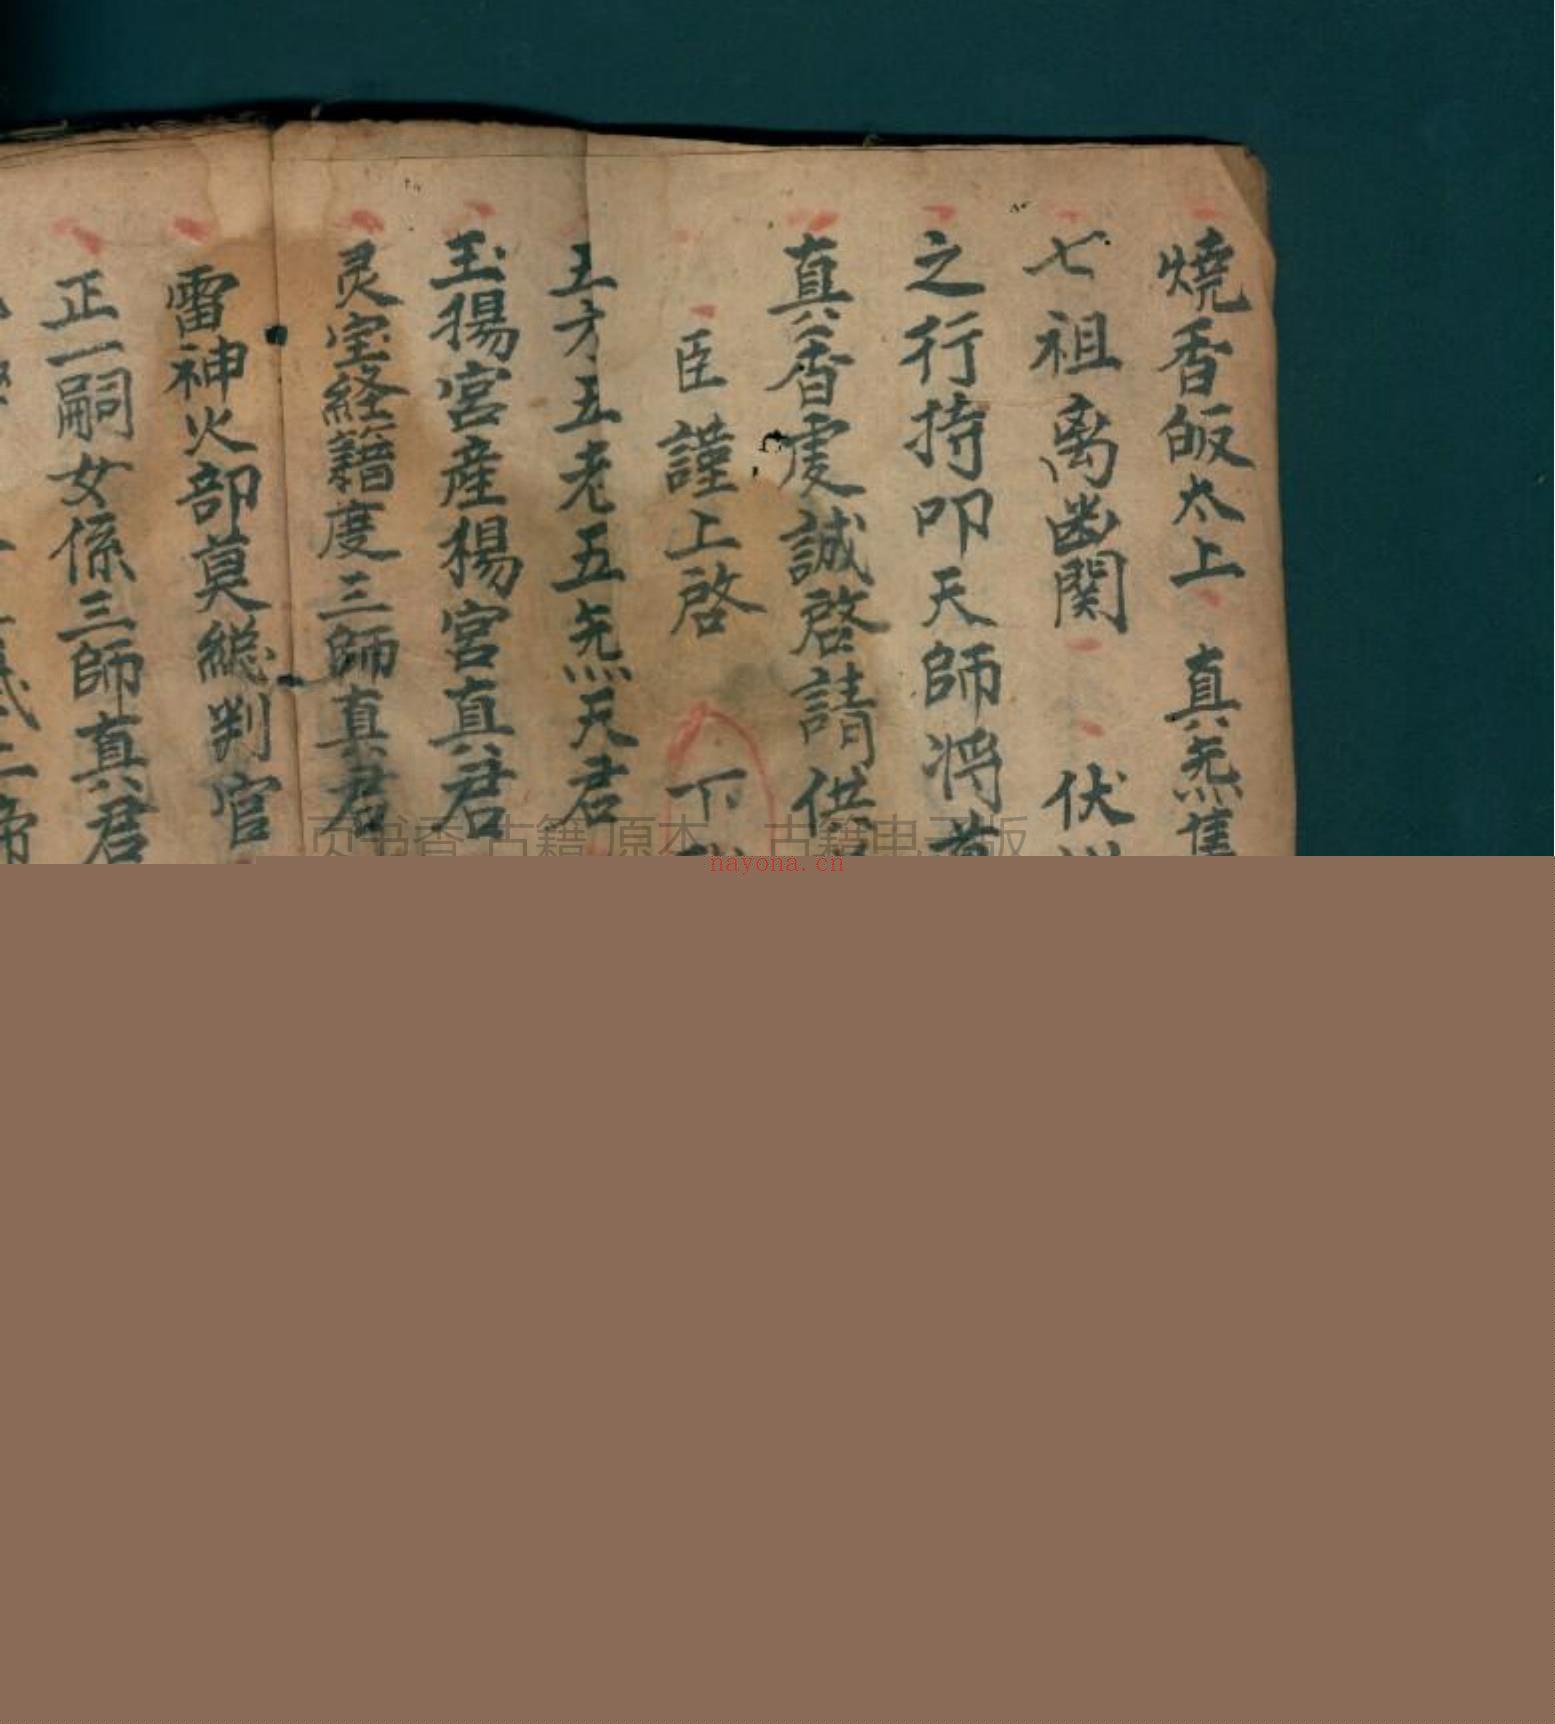 燒香皈太上 真炁
七祖离幽関 伏
之行持叩天師将
真香虔誠啓請供
臣謹上啓 下
五方五老五炁天君
玉揚宮産揚宮真君
灵宝経籍度三師真君
雷神火部莫総判官
正一嗣女係三師真君
页书香 古籍 原本 古籍电子版
nayona.cn